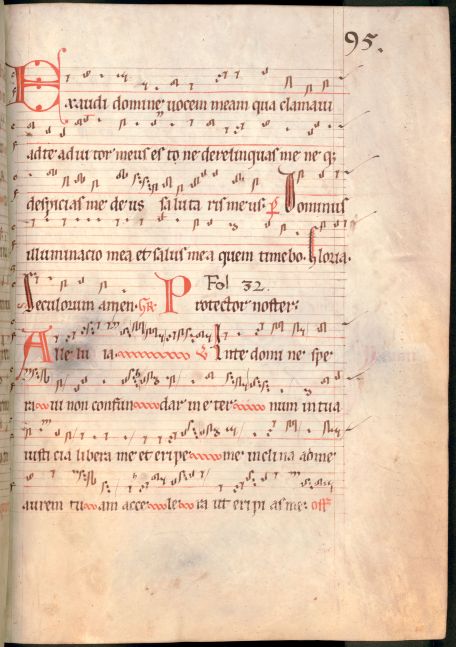 95.
Exaudi domine uocem meam qua clamaui
ad te ad iu tor meus es to ne derelinquas me ne q;
despicias me de us salu ta ris meus. p Dominus
illuminacio mea et salus mea quem timebo. Gloria.
Seculorum amen. Gr Fol 32.
Protector noster:
Alle lu ia v Inte domi ne spe
ra ui non confun dar in e ter num in tua
iusti cia libera me et eripe me inclina ad me
aurem tu am acce le ra ut eripi as me: off